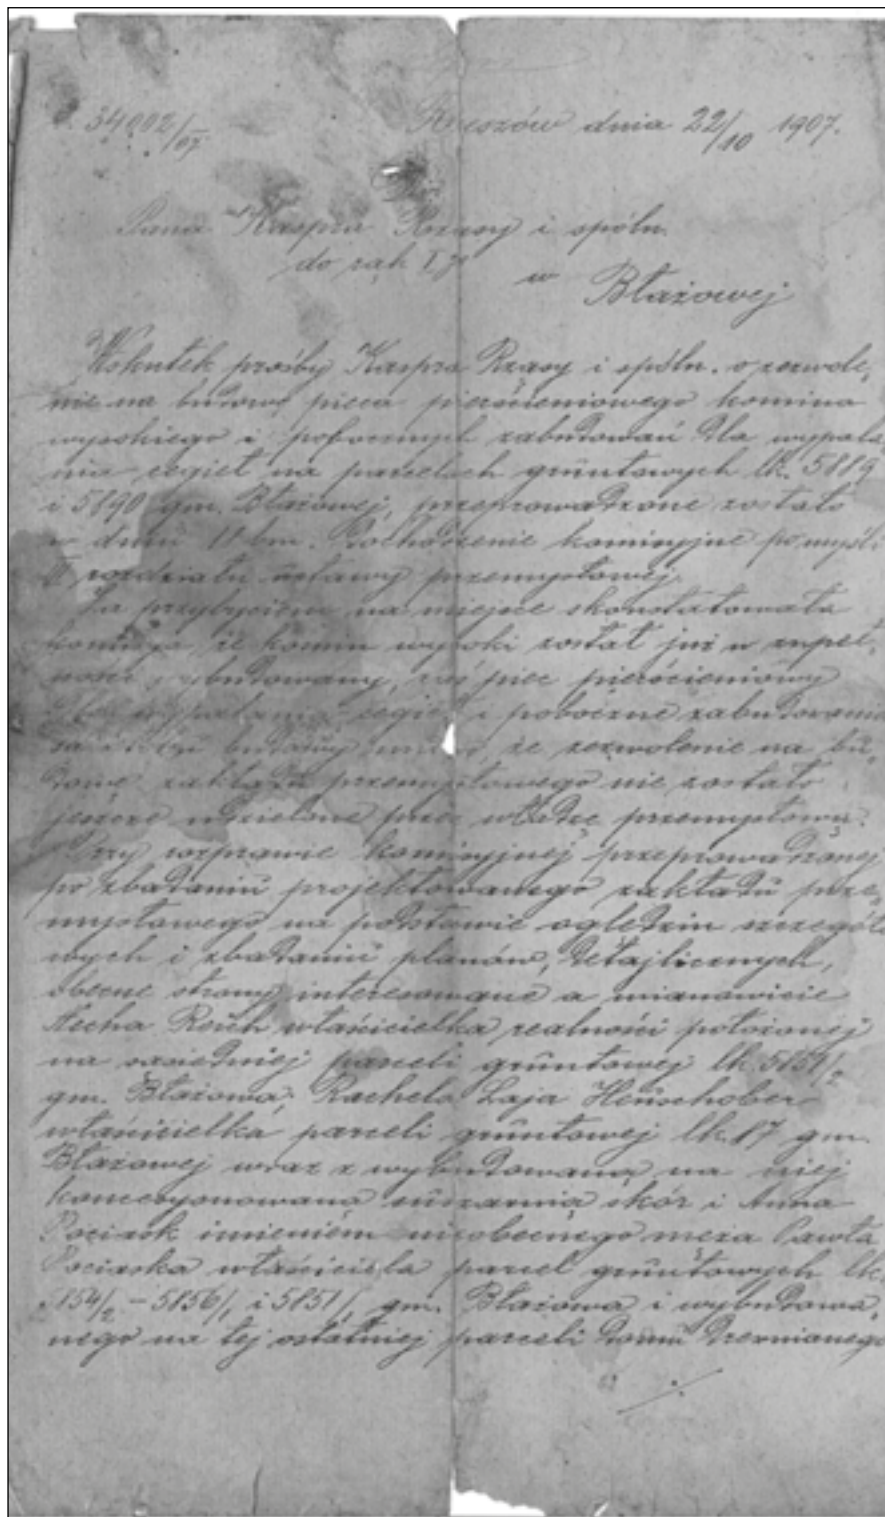 34002/07 Rzeszów dnia 22/10 1907.
Pana Kaspra Rząsy i spóln.
do rąk
w
Błażowej
Wskutek prośby Kaspra Rząsy i spóln. o zezwole„
nie na budowę pieca pierścieniowego komina
wysokiego i pobocznych zabudowań dla wypala„
nia cegieł na parcelach gruntowych lk. 5889
i 5890 gm. Błażowej, przeprowadzone zostało
w dniu bm. Dochodzenie komisyjne po myśli
rozdziału ustawy przemysłowej.
Za przybyciem na miejsce skonstatowała
komisya, że komin wysoki został już w zupeł„
ności wybudowany, zaś piec pierścieniowy
wypalania cegieł i poboczne zabudowania
są budowy mimo, że zezwolenie na bu„
dowę zakładu przemysłowego nie zostało
jeszcze udzielone przez władzę przemysłową.
Przy rozprawie komisyjnej przeprowadzonej
po zbadaniu projektowanego zakładu prze„
mysłowego na podstawie oględzin szczegóło
wych i zbadaniu planów, detajlicznych,
obecne strony interesowane a mianowicie
Necha Reich właścicielka realności położonej
na sąsiedniej parceli gruntowej lk. 5151/2
gm. Błażowa, Rachela Laja Heuschober
właścicielka parceli gruntowej lk. 17 gm.
Błażowej wraz z wybudowaną na niej
koncesyonowaną suszarnią skór i Anna
Pociask imieniem nieobecnego męża Pawła
Pociaska właściciela parcel gruntowych lk.
5154/2 – 5156/1 i 5151/1 gm. Błażowa i wybudowa„
nego na tej ostatniej parceli domu drewnianego